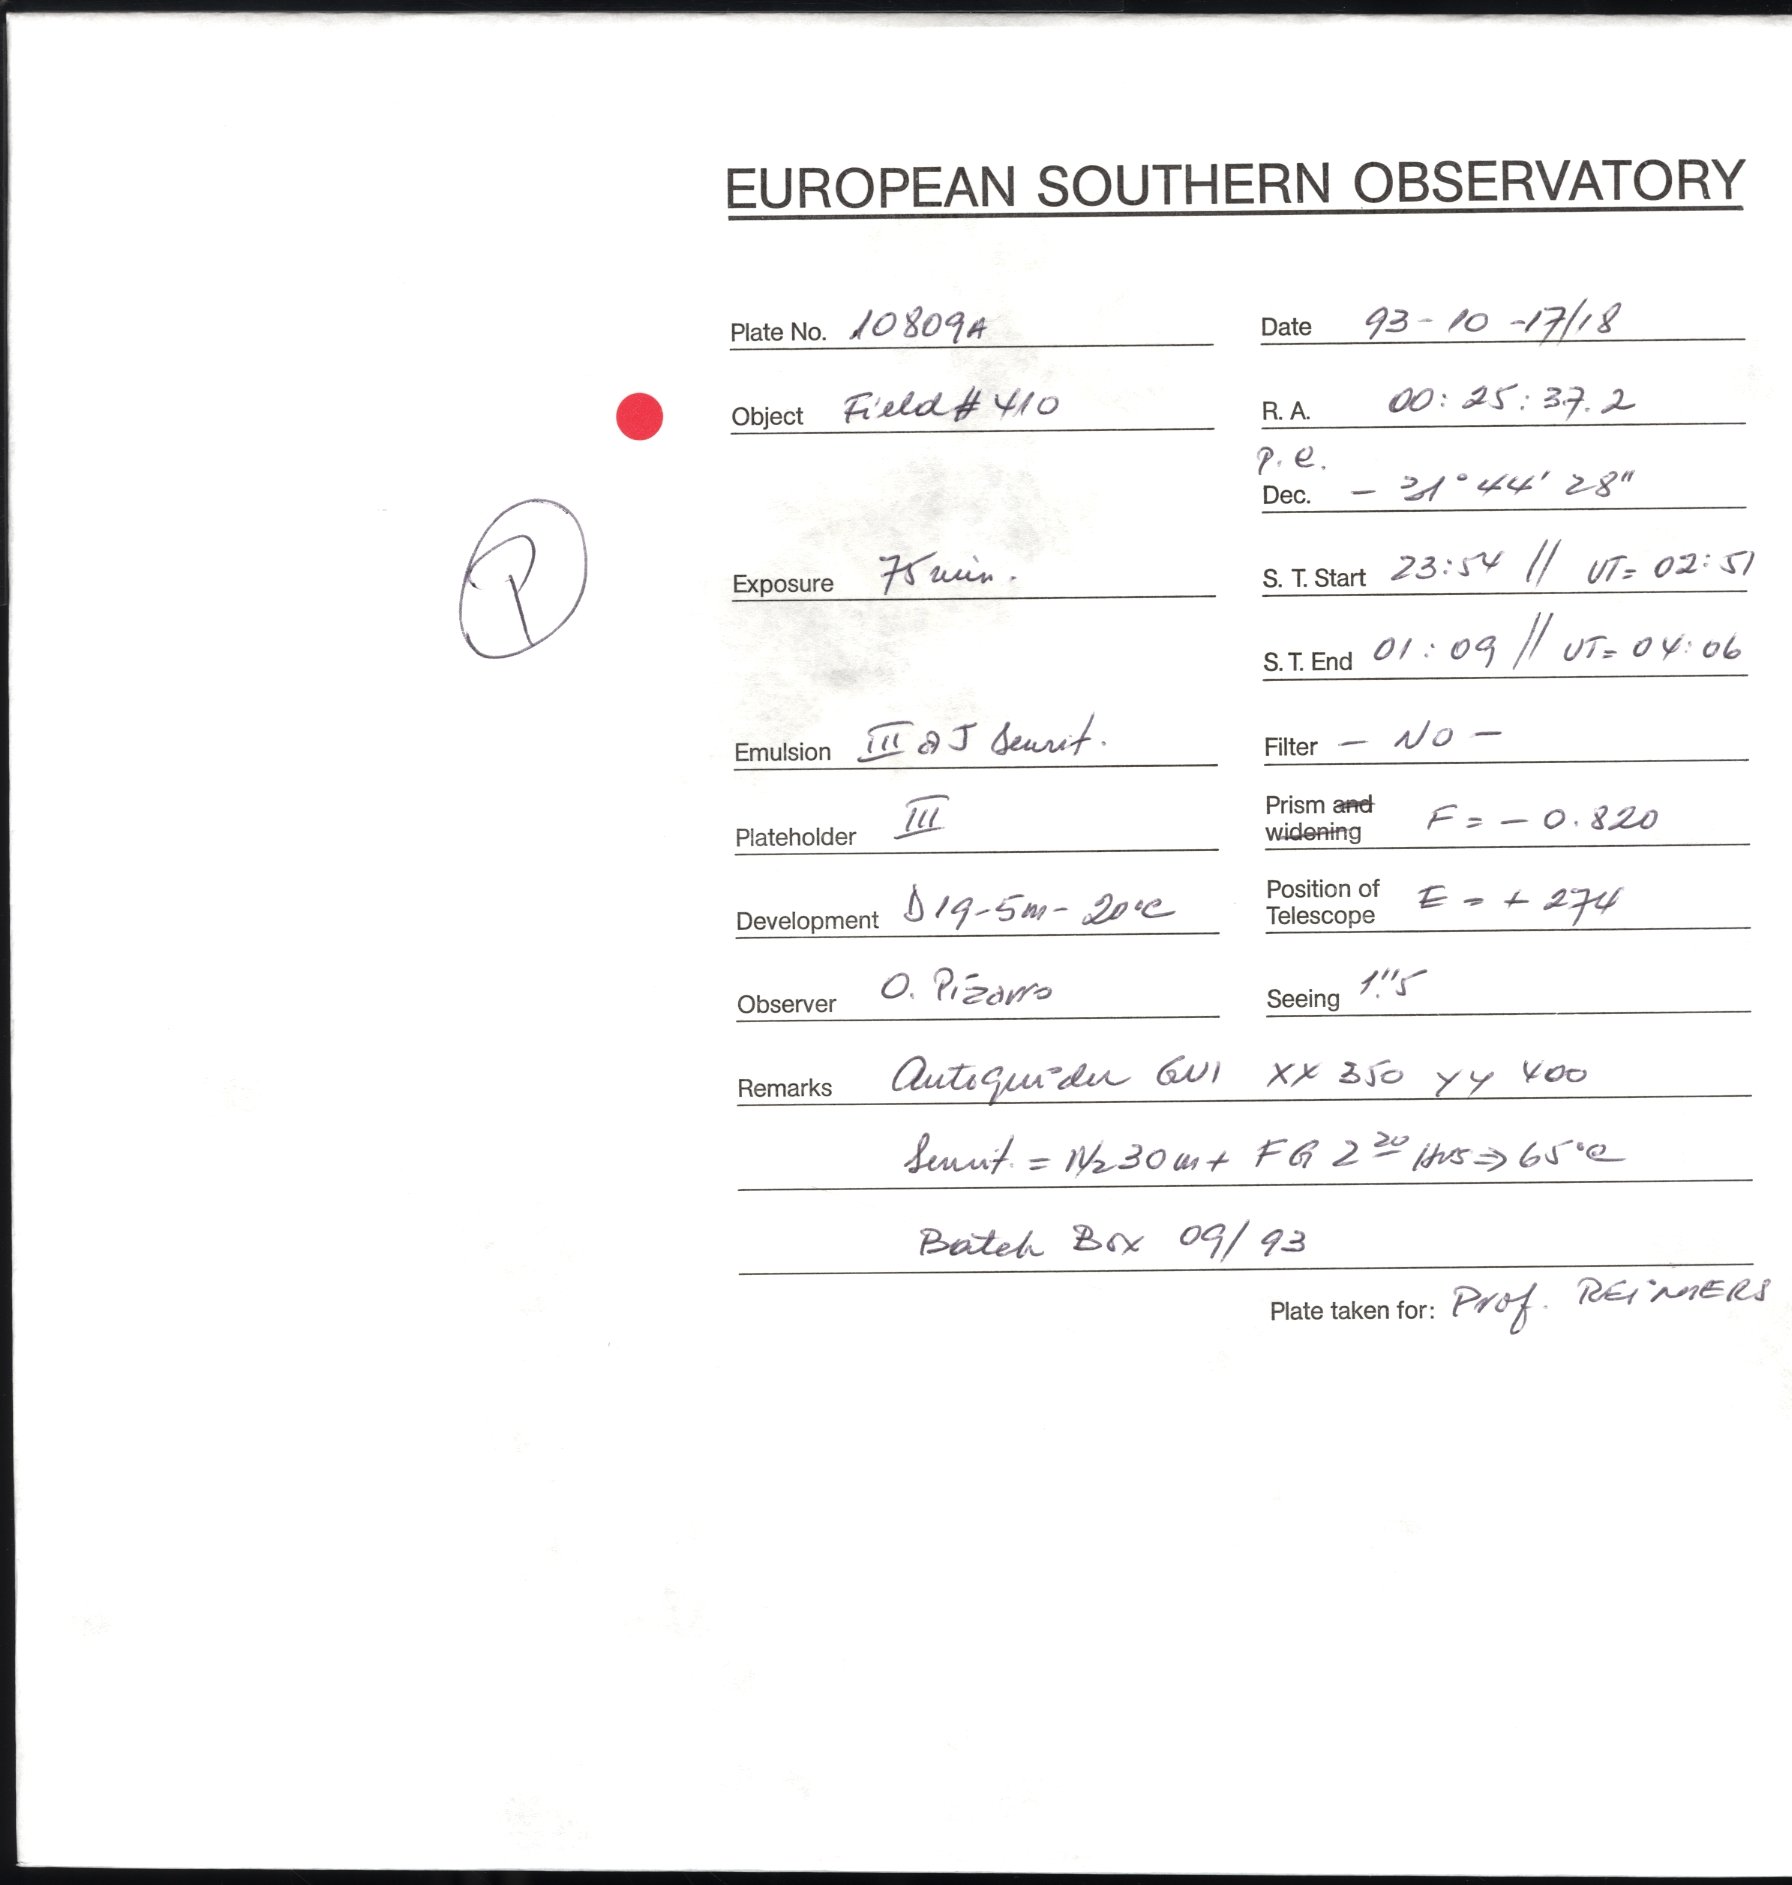 EUROPEAN SOUTHERN OBSERVATORY
Plate No. 10809A Date 93-10-17/18
Object Field # 410 R. A. 00:25:37.2
p. e.
Dec. - 31° 44' 28"
Exposure 75 min. S. T. Start 23:54 // UT= 02:51
S. T. End 01:09 // UT= 04:06
Emulsion III a J Sensit. Filter - NO -
Plateholder III Prism and widening F = - 0.820
Development D19-5m-20°C Position of Telescope E = + 274
Observer O. Pizarro Seeing 1."5
Remarks Autoguider GUI XX 350 YY 400
Sensit. = N2 30m + FG 2 20 Hrs => 65°C
Batch Box 09/93
Plate taken for: Prof. REIMERS
P